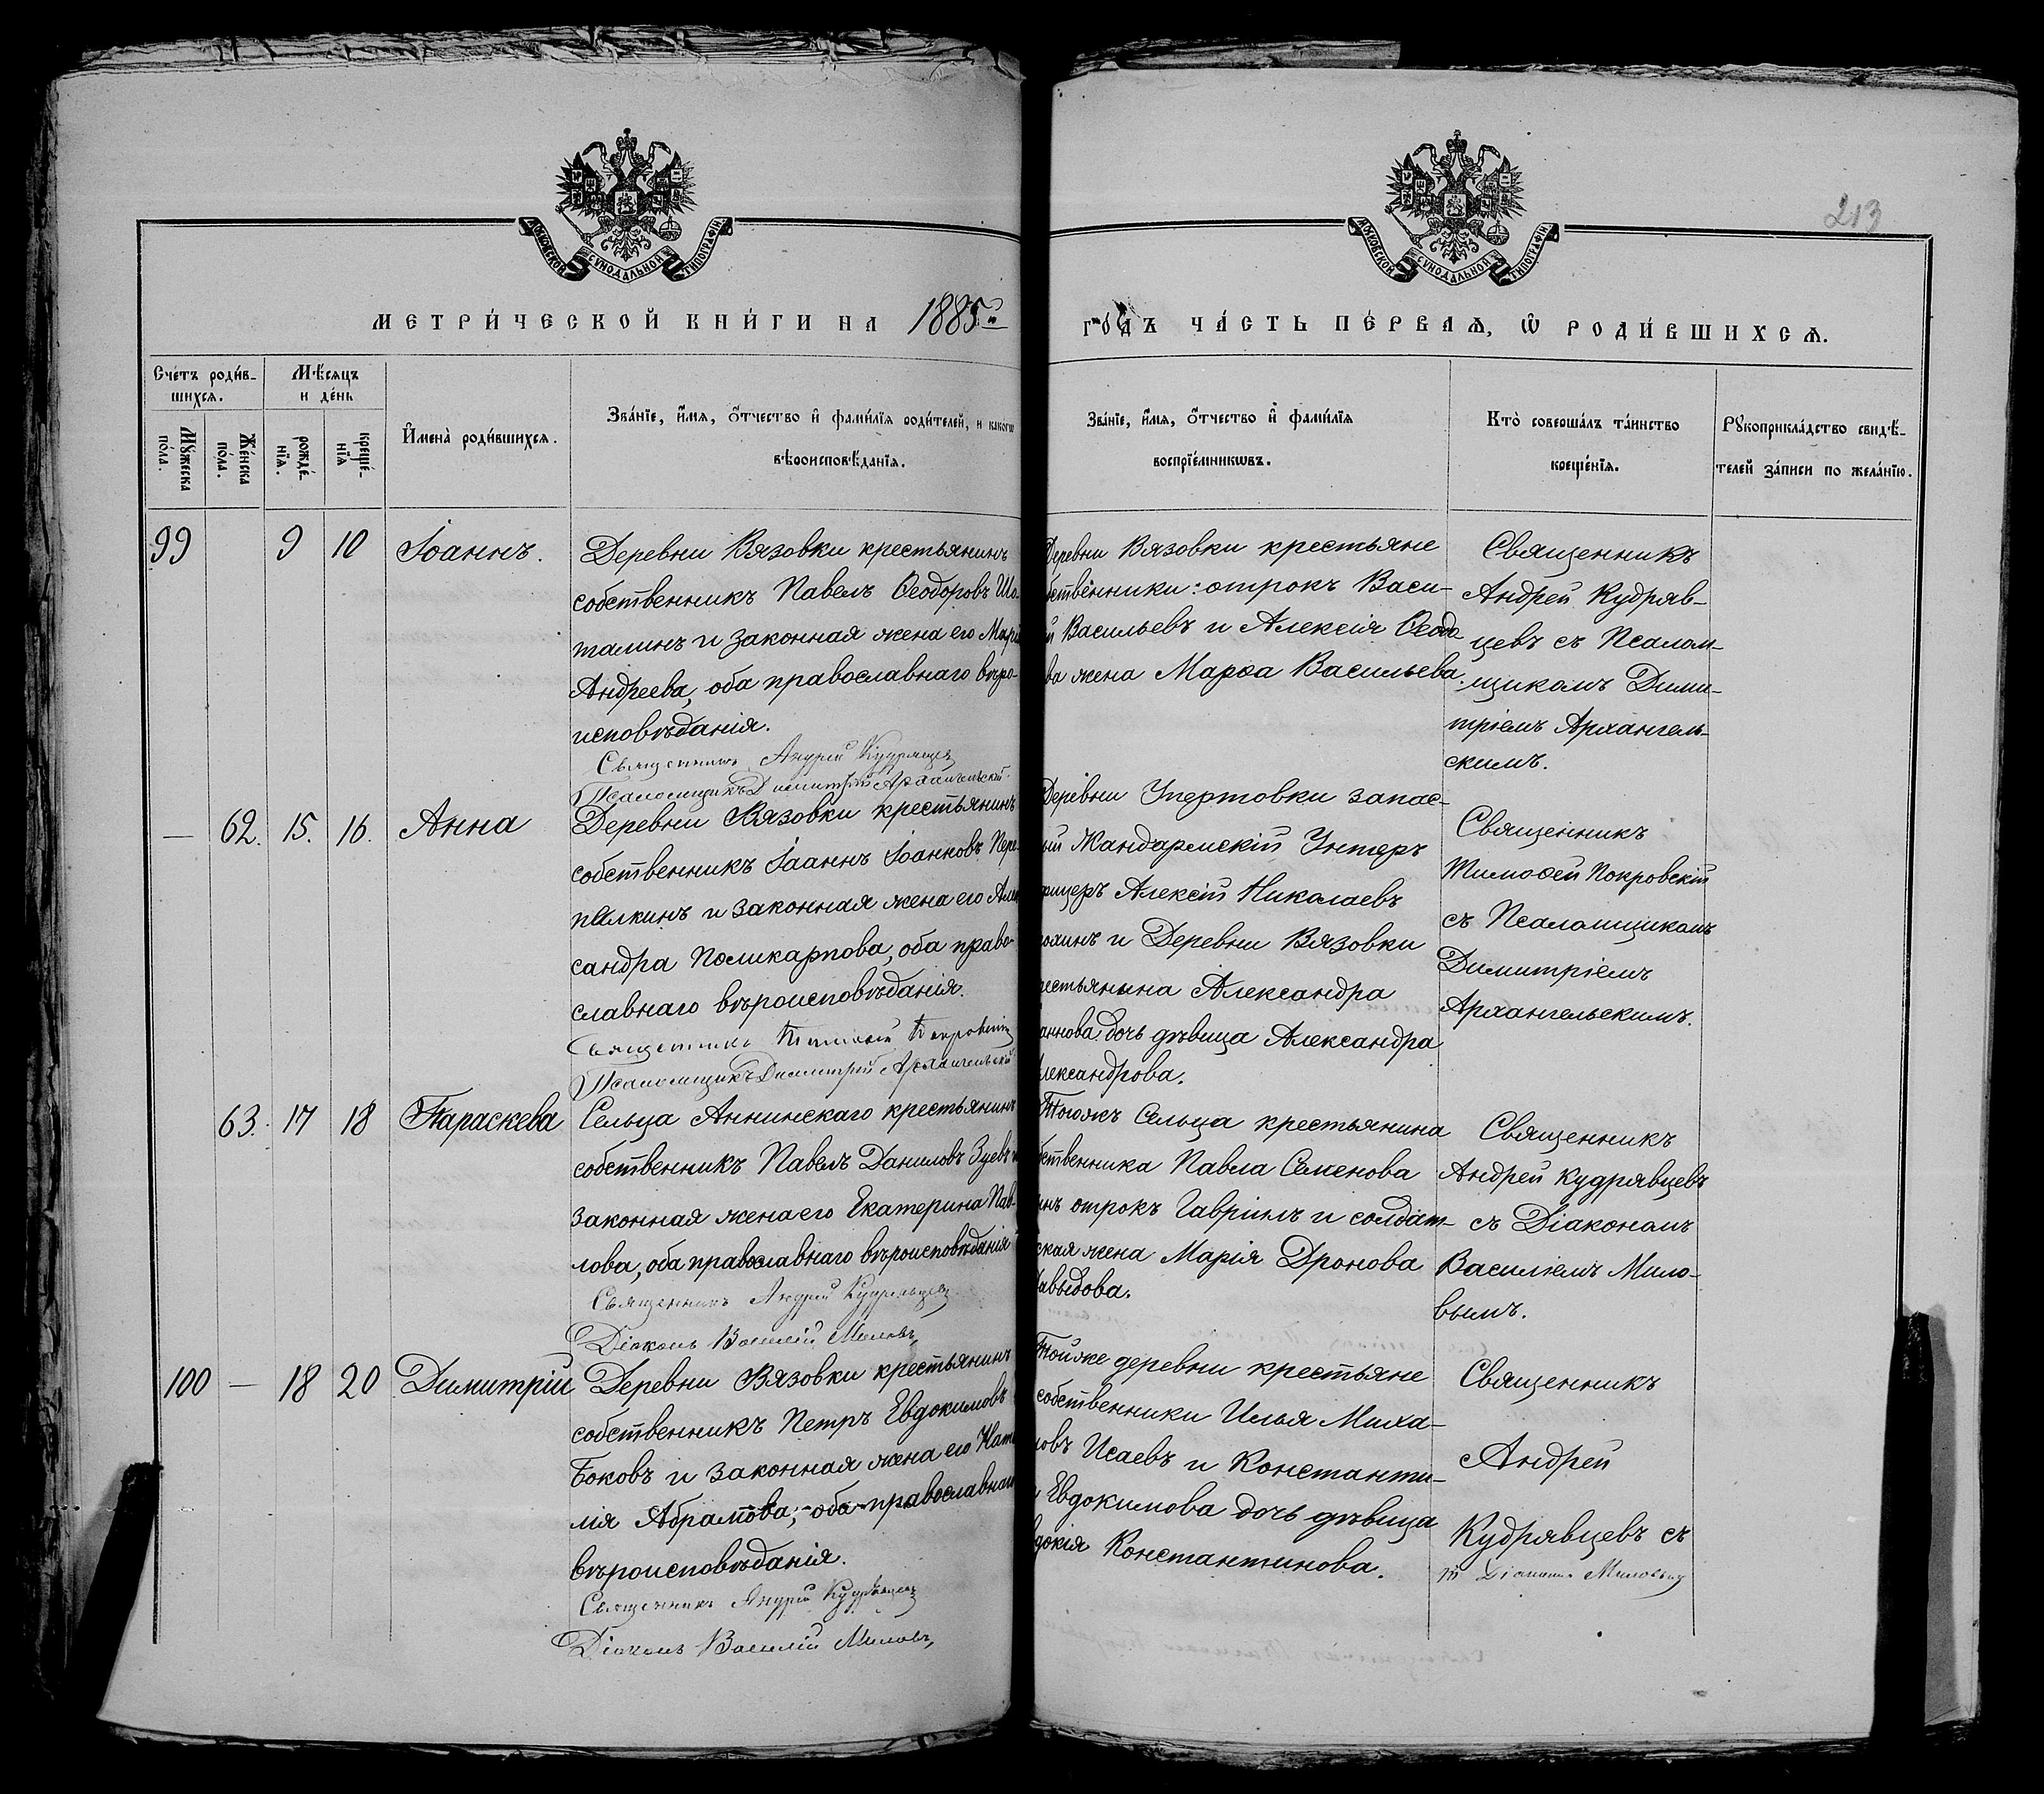 213
МОСКОВСКОЙ СУНОДАЛЬНОЙ ТИПОГРАФІИ
МОСКОВСКОЙ СУНОДАЛЬНОЙ ТИПОГРАФІИ
МЕТРИ́ЧЕСКОЙ КНИ́ГИ НА 1885й
ГО́ДЪ ЧА́СТЬ ПЕ́РВАѦ, Ѡ҆ РОДИ́ВШИХСѦ.
Сче́тъ роди́в-
шихсѧ.
Мѣ́сяцъ
и де́нь
Мꙋ́жеска
по́ла.
Же́нска
по́ла.
рожде́-
нїѧ.
креще́-
нїѧ
И҆мена̀ роди́вшихсѧ.
Зва́нїе, и҆́мѧ, ѻ҆́тчество и҆ фами́лїѧ роди́телей, и какогѡ
вѣроисповѣ́данїѧ.
Зва́нїе, и҆́мѧ, ѻ҆́тчество и҆ фами́лїѧ
воспрїе́мникѡвъ.
Кто̀ соверша́лъ та́инство
креще́нїѧ.
Рꙋкоприкла́дство свидѣ́-
телей за́писи по жела́нїю.
99 9 10 Іоаннъ.
Деревни Вязовки крестьянинъ
собственникъ Павелъ Ѳеодоровъ Шо-
талинъ и законная жена его
Андреева, оба православнаго вѣро-
исповѣданія.
Священникъ Андрей Кудрявцев
Псаломщикъ Димитрій Архангельскій
Деревни Вязовки крестьяне
бственники: отрокъ Васи-
й Васильевъ и Алексія Ѳеодо
ва жена Марѳа Васильева.
Священникъ
Андрей Кудряв-
цевъ съ Псалом-
щикомъ Дими-
тріемъ Архангель-
скимъ.
— 62. 15. 16. Анна
Деревни Вязовки крестьянинъ
собственникъ Іоаннъ Іоанновъ Пере-
пёлкинъ и законная жена его Алек
сандра Поликарпова, оба право-
славнаго вѣроисповѣданія.
Священникъ Тимоѳей Покровскій
Псаломщикъ Димитрій Архангельскій
Деревни Упертовки запас-
ый Жандармскій Унтеръ
фицеръ Алексій Николаевъ
охинъ и Деревни Вязовки
рестьянина Александра
аннова дочь дѣвица Александра
лександрова.
Священникъ
Тимоѳей Покровскій
съ Псаломщикомъ
Димитріемъ
Архангельскимъ.
63. 17 18 Параскева
Сельца Аннинскаго крестьянинъ
собственникъ Павелъ Даниловъ Зуевъ и
законная жена его Екатерина Пав-
лова, оба православнаго вѣроисповѣданія
Священникъ Андрей Кудрявцев
Діаконъ Василій Миловъ,
Тогожъ Сельца крестьянина
бственника Павла Семенова
инъ отрокъ Гавріилъ и солдат-
ская жена Марія Дронова
Давыдова.
Священникъ
Андрей Кудрявцевъ
съ Діакономъ
Василіемъ Мило-
вымъ.
100 — 18 20 Димитрій
Деревни Вязовки крестьянинъ
собственникъ Петръ Евдокимовъ
Боковъ и законная жена его Ната
лія Абрамова, оба православнаго
вѣроисповѣданія.
Священникъ Андрей Кудрявцевъ
Діаконъ Василій Миловъ,
Тойже деревни крестьяне
собственники Илья Миха-
ловъ Исаевъ и Константи-
Евдокимова дочь дѣвица
вдокія Константинова.
Священникъ
Андрей
Кудрявцевъ съ
Діакономъ Миловымъ